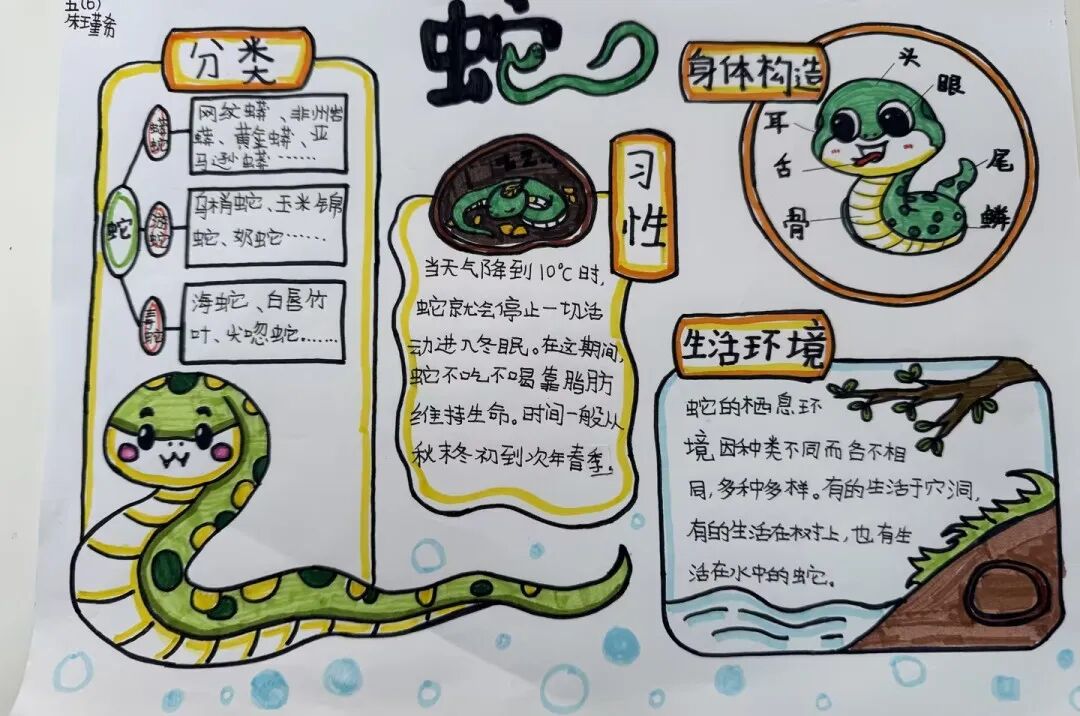 五(6)
朱玉墐希
蛇
分类
蛇
蟒蛇
网纹蟒、非州岩
蟒、黄金蟒、亚
马逊蟒……
游蛇
乌梢蛇、玉米锦
蛇、奶蛇……
毒蛇
海蛇、白唇竹
叶、尖吻蛇……
习性
当天气降到10℃时,
蛇就会停止一切活
动进入冬眠。在这期间,
蛇不吃不喝靠脂肪
维持生命。时间一般从
秋末冬初到次年春季。
身体构造
头
眼
耳
舌
尾
骨
鳞
生活环境
蛇的栖息环
境,因种类不同而各不相
同,多种多样。有的生活于穴洞,
有的生活在树上,也有生
活在水中的蛇。